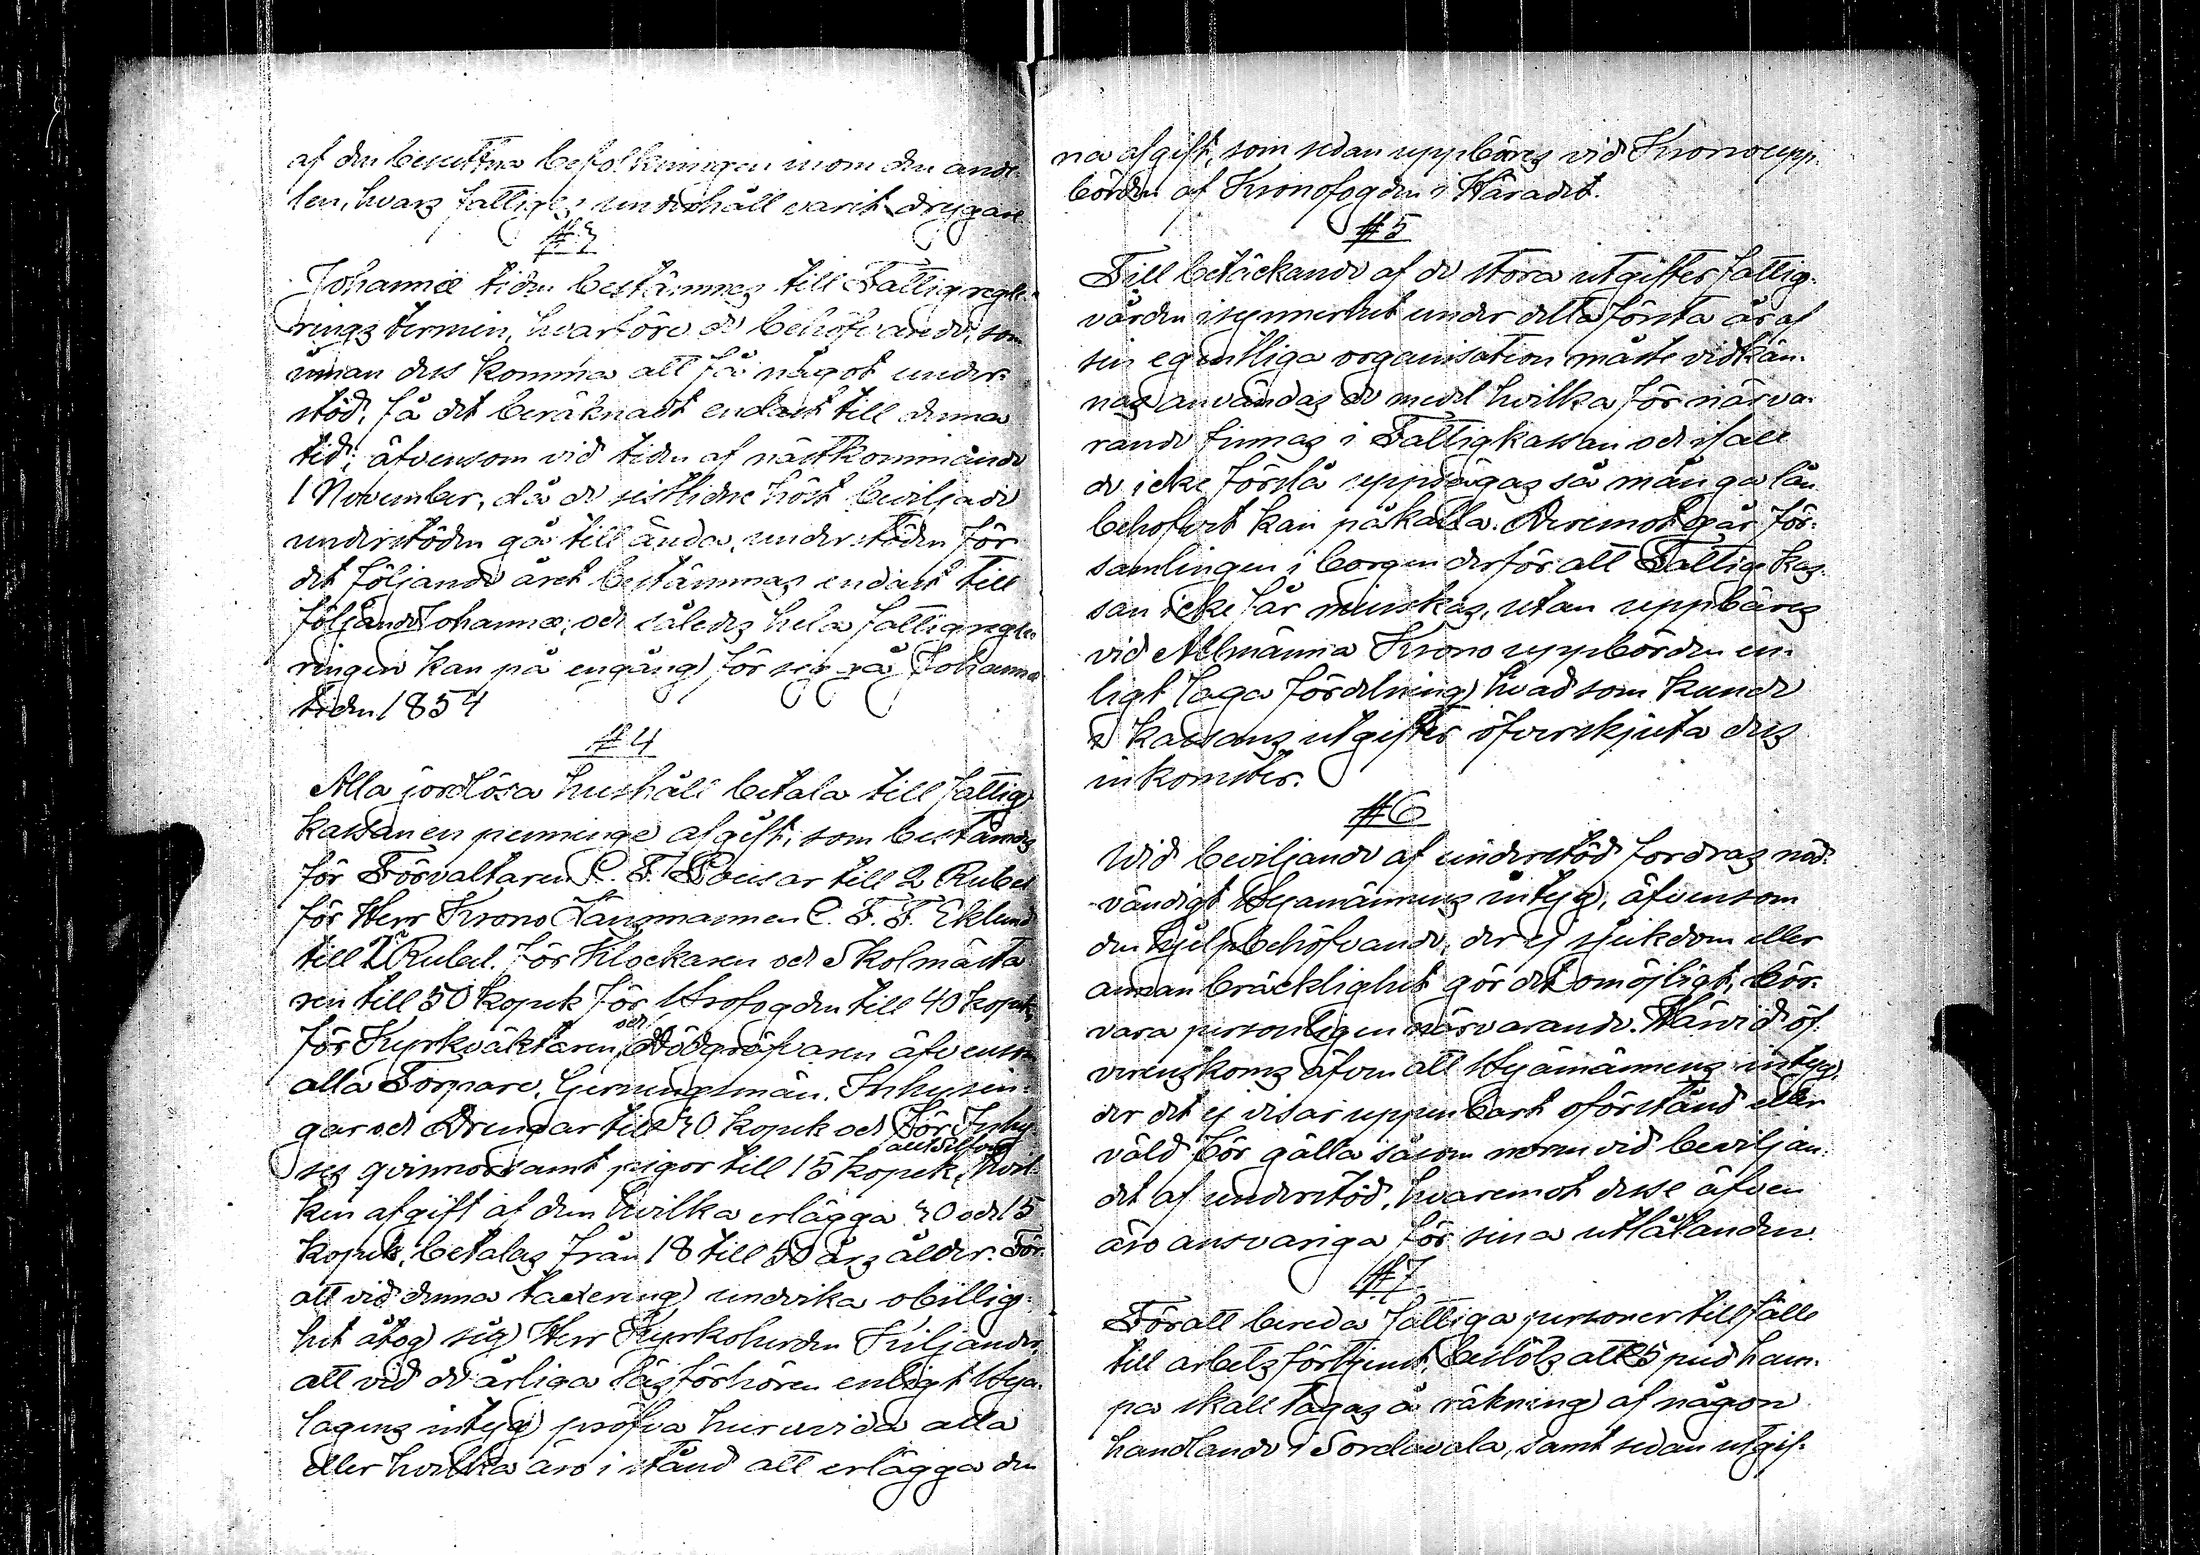 af den besuttna befolkningen inom den ande-
len, hvars fattiges underhåll varit drygare
# 3
Johannis tiden bestämmes till Fattigregle-
rings termin, hvarföre de behöfvande, som
innan dess komma att få något under-
stöd, få det beräknadt endast till denna
tid; äfvensom vid tiden af nästkommande
1 November, då de sistlidne höst beviljade
understöden gå till ända, understöden för
det följande året bestämmas endast till
följande Johannis, och således hela fattigregle-
ringen kan på engång för sig gå Johannis
tiden 1854
# 4
Alla jordlösa hushåll betala till fattig-
kassan en penninge afgift, som bestämdes
för Förvaltaren C. F. Pousar till 2 Rubel
för Herr Krono Länsmannen C. F. F. Eklund
till 2 Rubel. för Klockaren och Skolmästa
ren till 50 kopek för Utrofogden till 40 kopek,
för Kyrkväktaren och Dödgräfvaren äfvensom
alla Torpare, Gerningsmän, Inhysin-
gar och Drengar till 30 kopek och för Inhy
ses qvinnor samt pigor till 15 kopek, allt silfver hvil-
ken afgift af dem hvilka erlägga 30 och 15
kopek, betalas från 18 till 50 års ålder. För
att vid denna taxering undvika obillig-
het åtog sig Herr Kyrkoherden Siljander,
att vid de årliga läsförhören enligt Bya-
lagens intyg pröfva huruvida alla
eller hvilka äro i stånd att erlägga den
na afgift, som sedan uppbäres vid Kronoupp-
börden af Kronofogden i Häradet.
# 5
Till betäckande af de stora utgifter fattig-
vården i synnerhet under detta första år af
sin egentliga organisation måste vidkän-
nas användas de medel hvilka för närva-
rande finnas i Fattigkassan och ifall
de icke förslå uppsägas så många lån
behofvet kan påkalla. Deremot går för-
samlingen i borgen derför att Fattigkas-
san icke får minskas, utan uppbäres
vid Allmänna Krono uppbörden en-
ligt laga fördelning hvad som kunde
i kassans utgifter öfverskjuta dess
inkomster.
# 6
Wid beviljande af understöd fordras nöd-
vändigt Byamännens intyg, äfvensom
den hjelpbehöfvande, der ej sjukdom eller
annan bräcklighet gör det omöjligt, bör
vara personligen närvarande. Härvid öf-
verenskoms äfven att Byamännens intyg,
der det ej visar uppenbart oförstånd eller
våld bör gälla såsom norm vid beviljan-
det af understöd, hvaremot desse äfven
äro ansvariga för sina utlåtanden.
# 7
För att bereda fattiga personer tillfälle
till arbetsförtjenst, beslöts att 5 pud ham-
pa skall tagas å räkning af någon
handlande i Sordavala, samt sedan utgif-